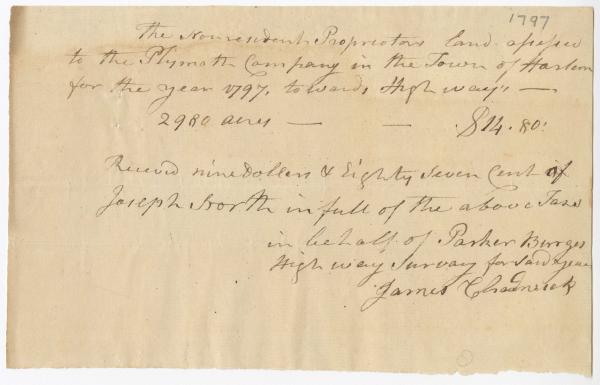 1797
the Nonresident Proprietors land assessed
to the Plymoth Company in the Town of Harlem
for the year 1797, towards High ways —
2980 acres — — $14.80:
Receivd nine Dollers & Eighty Seven Cent of
Joseph North in full of the above Taxs
in behalf of Parker Burges
High way Survay for Said year
James Chadwick